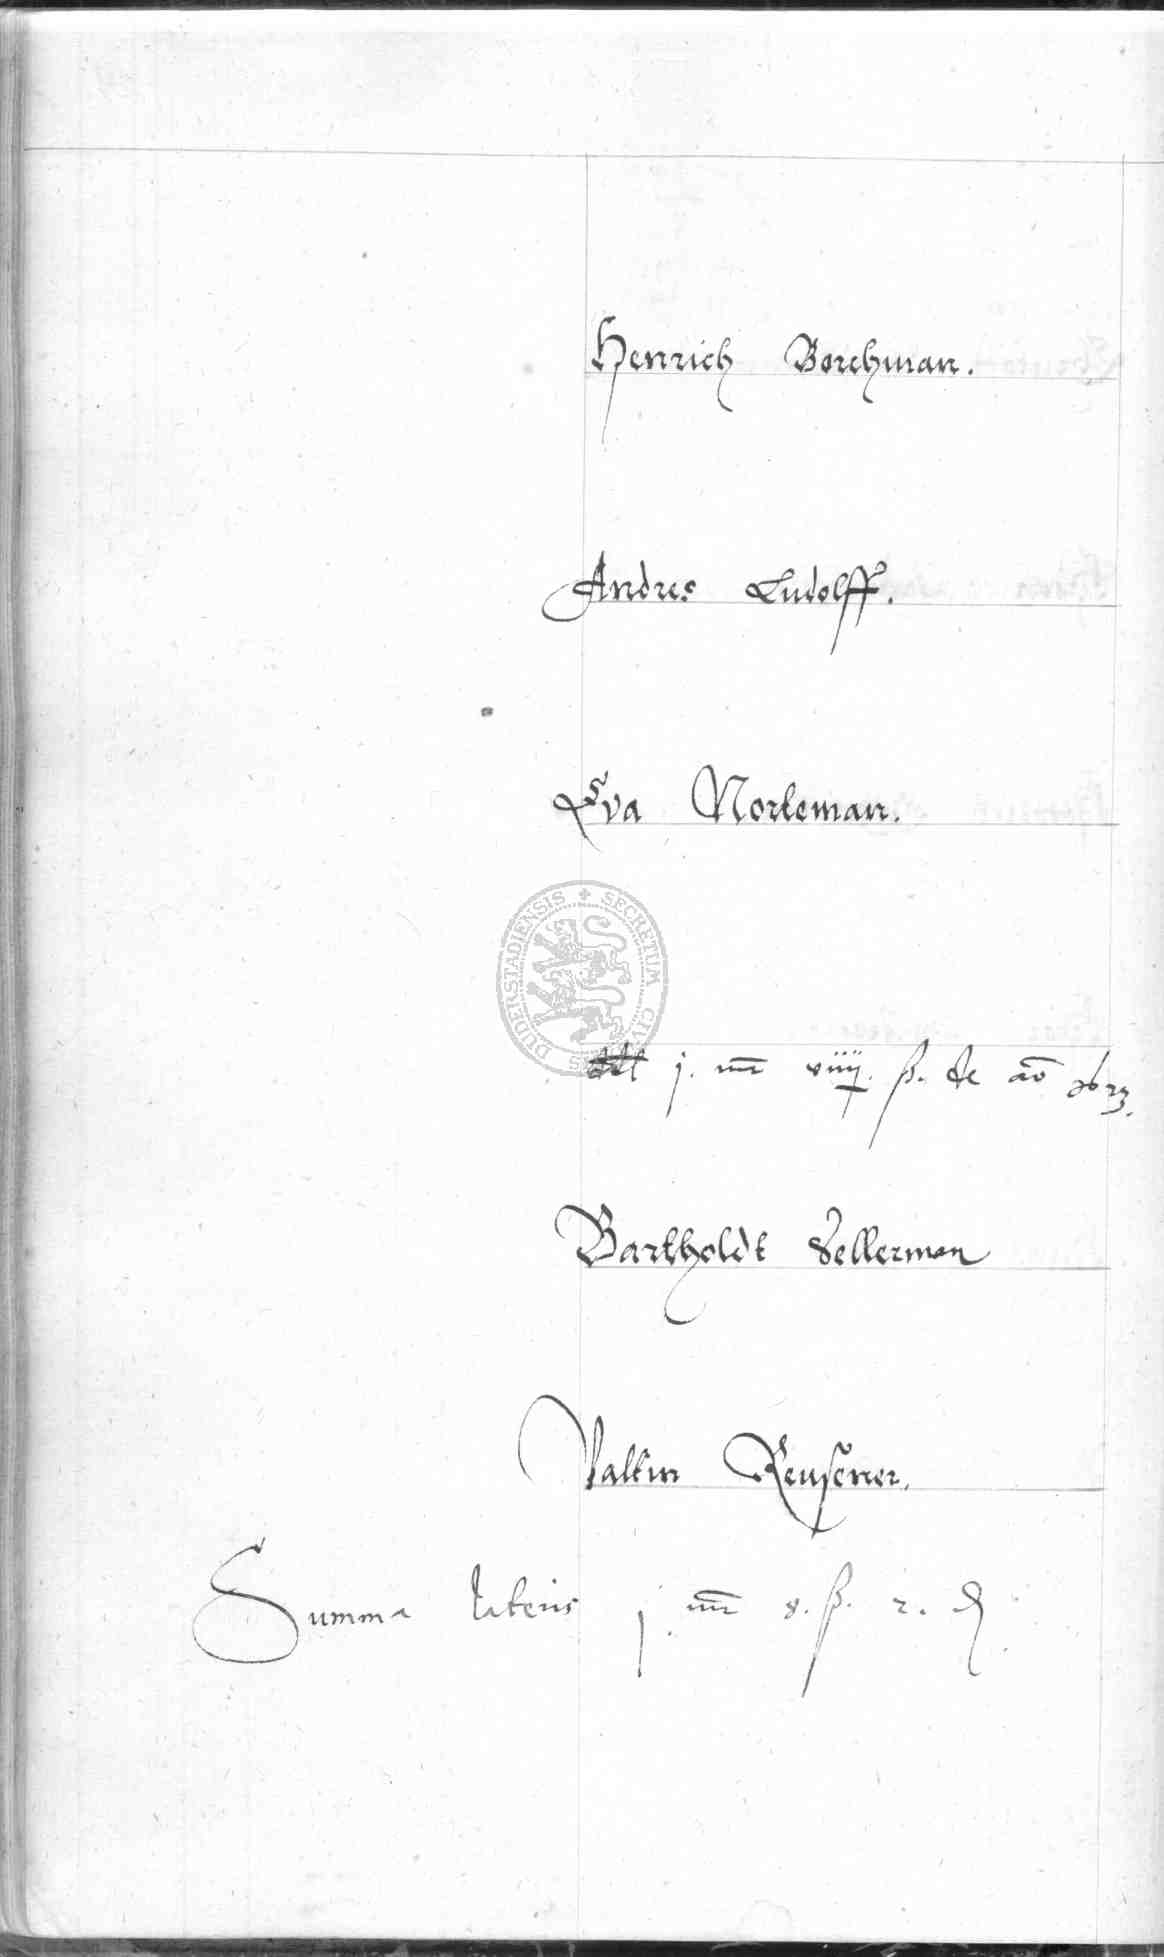 Henrich Borchman.
Andres Ludolff.
Eva Norteman.
SECRETUM CIVI DUDERSTADIENSIS
j. mr viiij. ß. de ao 1623.
Bartholdt Sellerman
Valtin Reusener.
Summa lateris j. mr 8. ß. 2. ₰